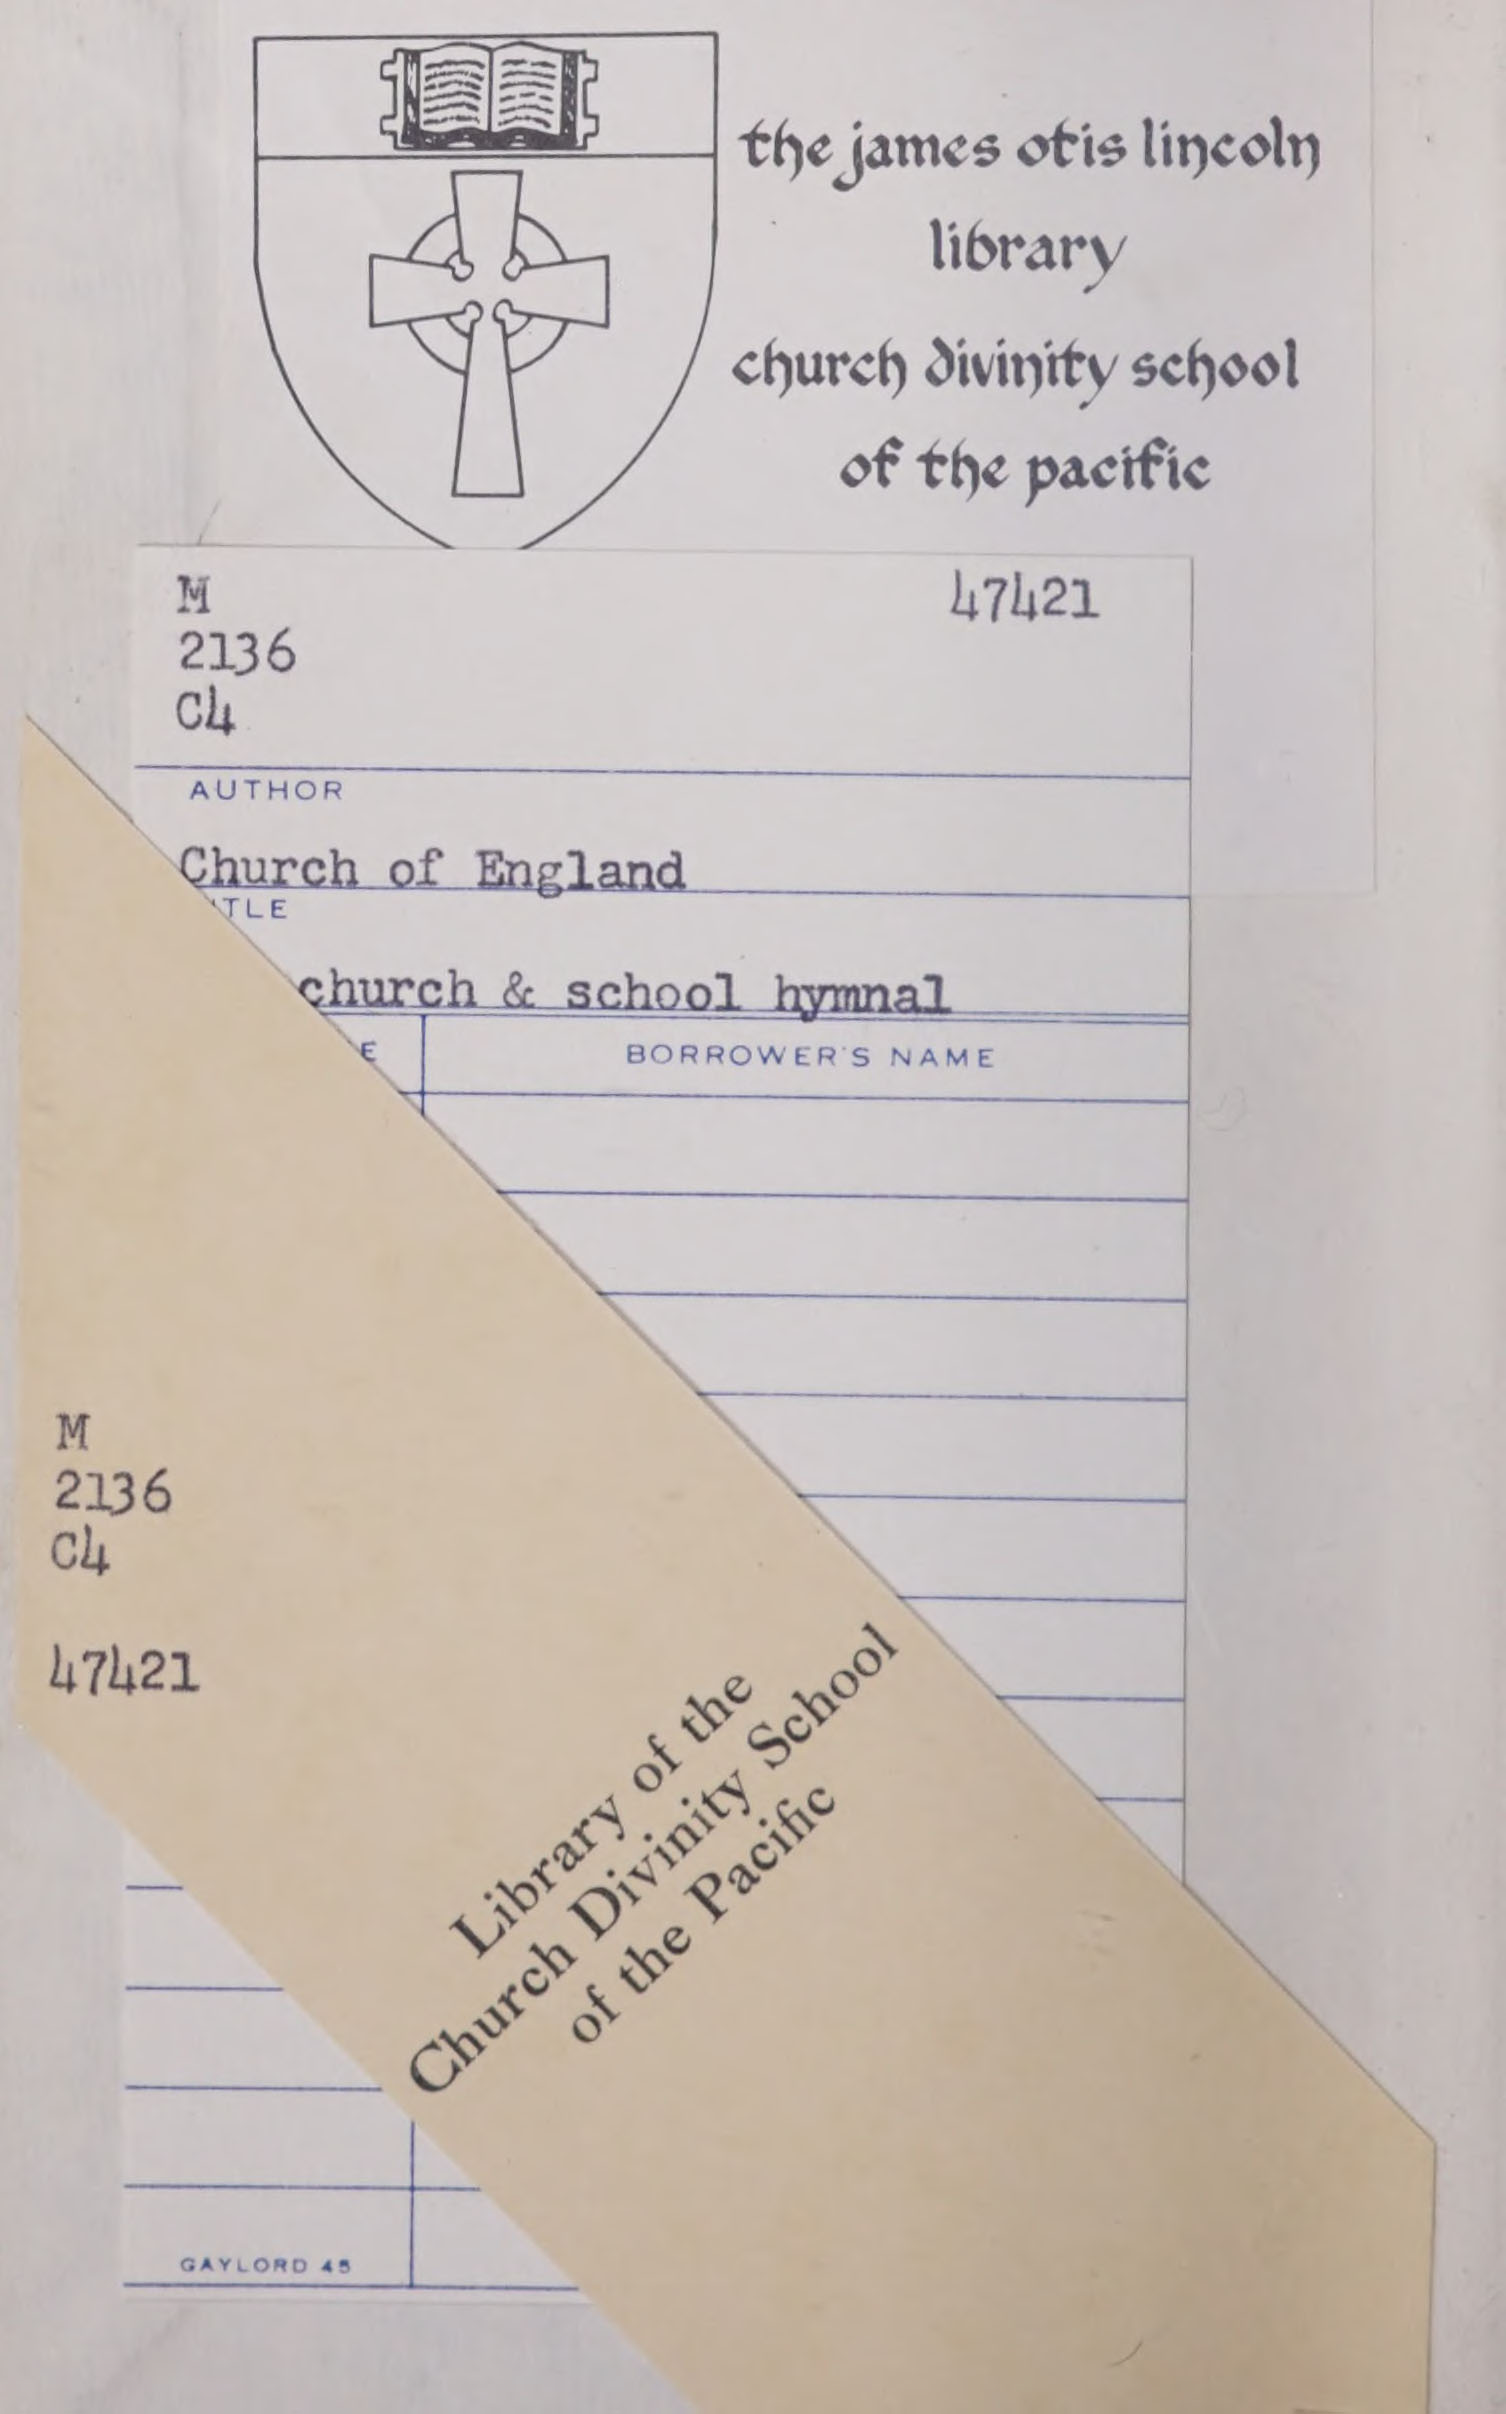 the james otis lincoln
library
church divinity school
of the pacific
M 47421
2136
C4
AUTHOR
Church of England
TLE
church & school hymnal
E BORROWER'S NAME
M
2136
C4
47421
Library of the
Church Divinity School
of the Pacific
GAYLORD 45